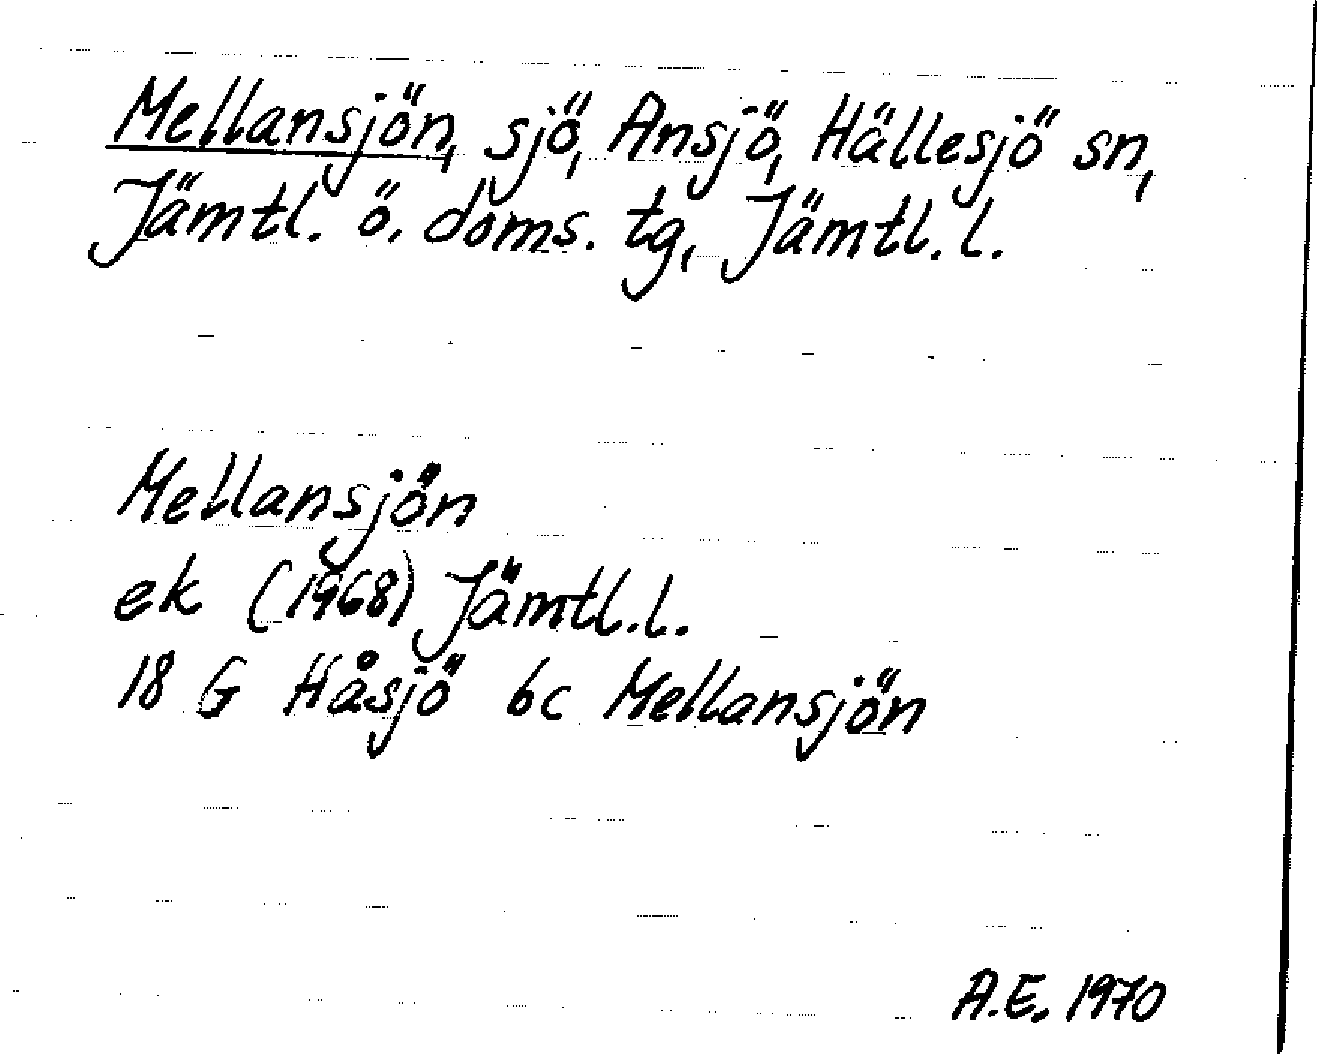 Mellansjön, sjö, Ansjö, Hällesjö sn,
Jämtl. ö. doms. tg, Jämtl. l.
Mellansjön
ek (1968) Jämtl. l.
18 G Håsjö 6c Mellansjön
A.E. 1970